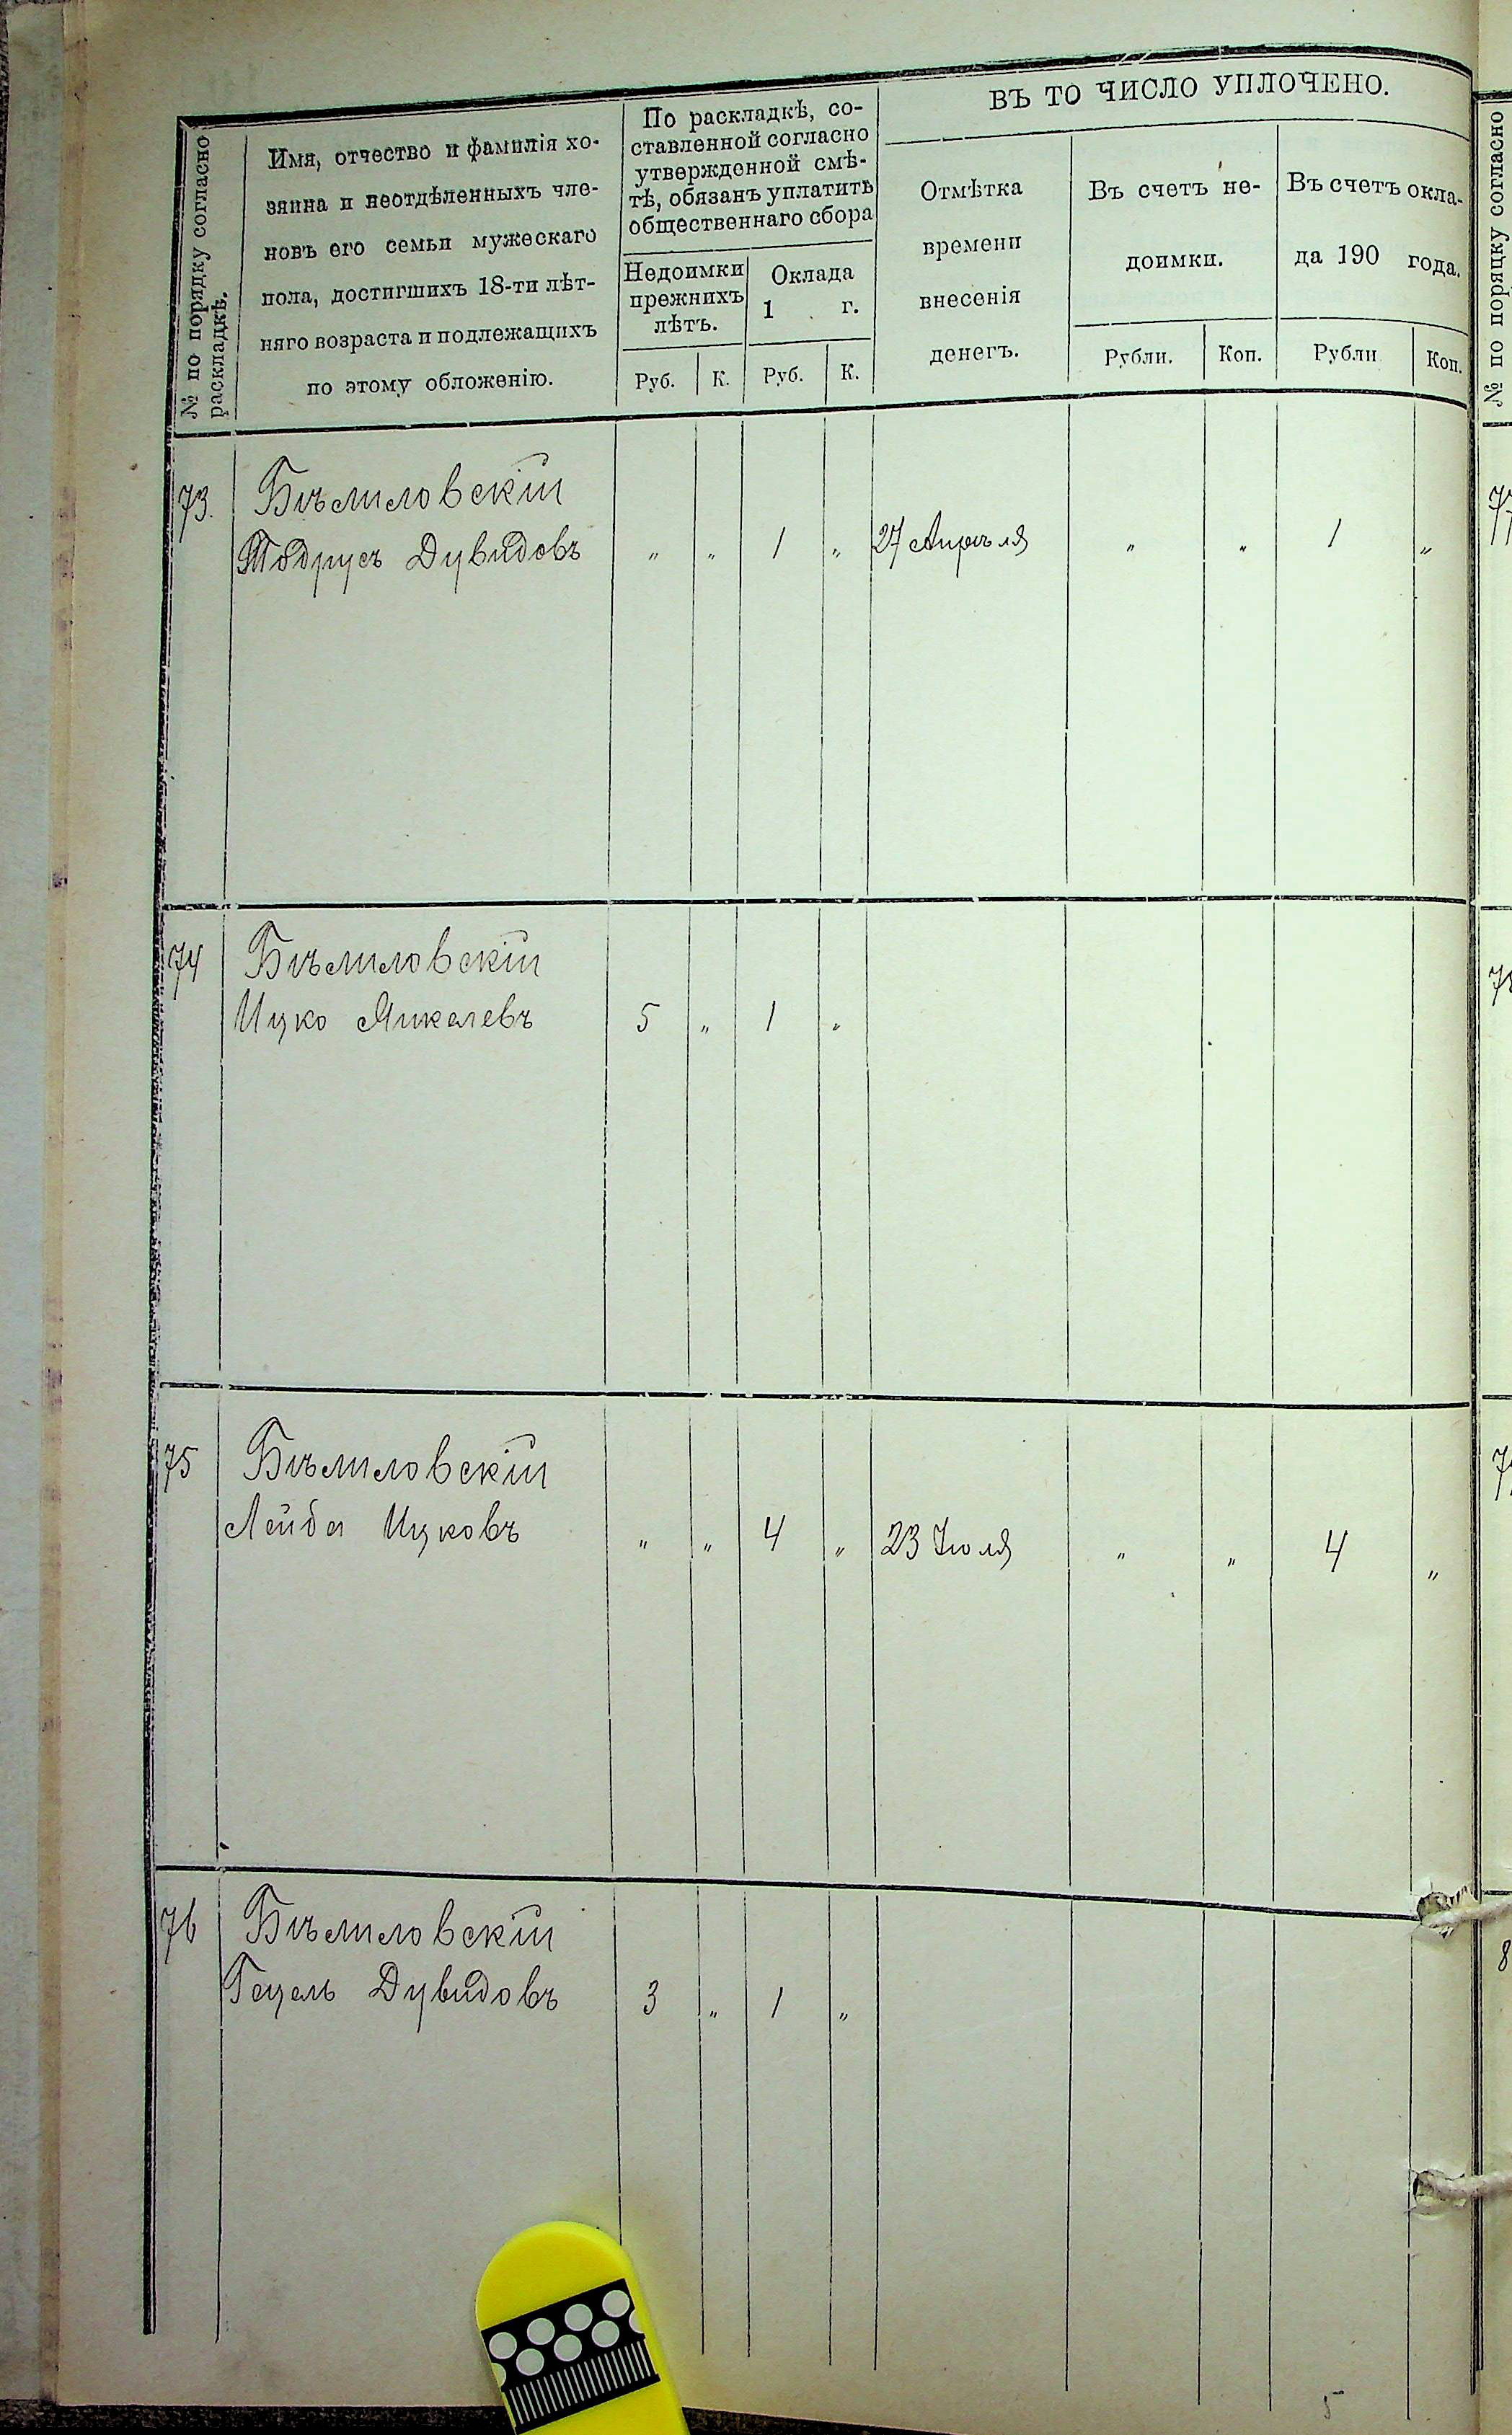 № по порядку согласно
раскладкѣ.
Имя, отчество и фамилія хо-
зяина и неотдѣленныхъ чле-
новъ его семьи мужескаго
пола, достигшихъ 18-ти лѣт-
няго возраста и подлежащихъ
по этому обложенію.
По раскладкѣ, со-
ставленной согласно
утвержденной смѣ-
тѣ, обязанъ уплатить
общественнаго сбора
Недоимки
прежнихъ
лѣтъ.
Оклада
1 г.
Руб. К. Руб. К.
ВЪ ТО ЧИСЛО УПЛОЧЕНО.
Отмѣтка
времени
внесенія
денегъ.
Въ счетъ не-
доимки.
Въ счетъ окла-
да 190 года.
Рубли. Коп. Рубли Коп.
73. Бѣлиловскій
Тодрусъ Дувидовъ " " 1 " 27 Апрѣля " " 1 "
74 Бѣлиловскій
Ицко Янкелевъ 5 " 1 "
75 Бѣлиловскій
Лейба Ицковъ " " 4 " 23 Іюля " " 4 "
76 Бѣлиловскій
Гецель Дувидовъ 3 " 1 "
5
№ по порядку согласно